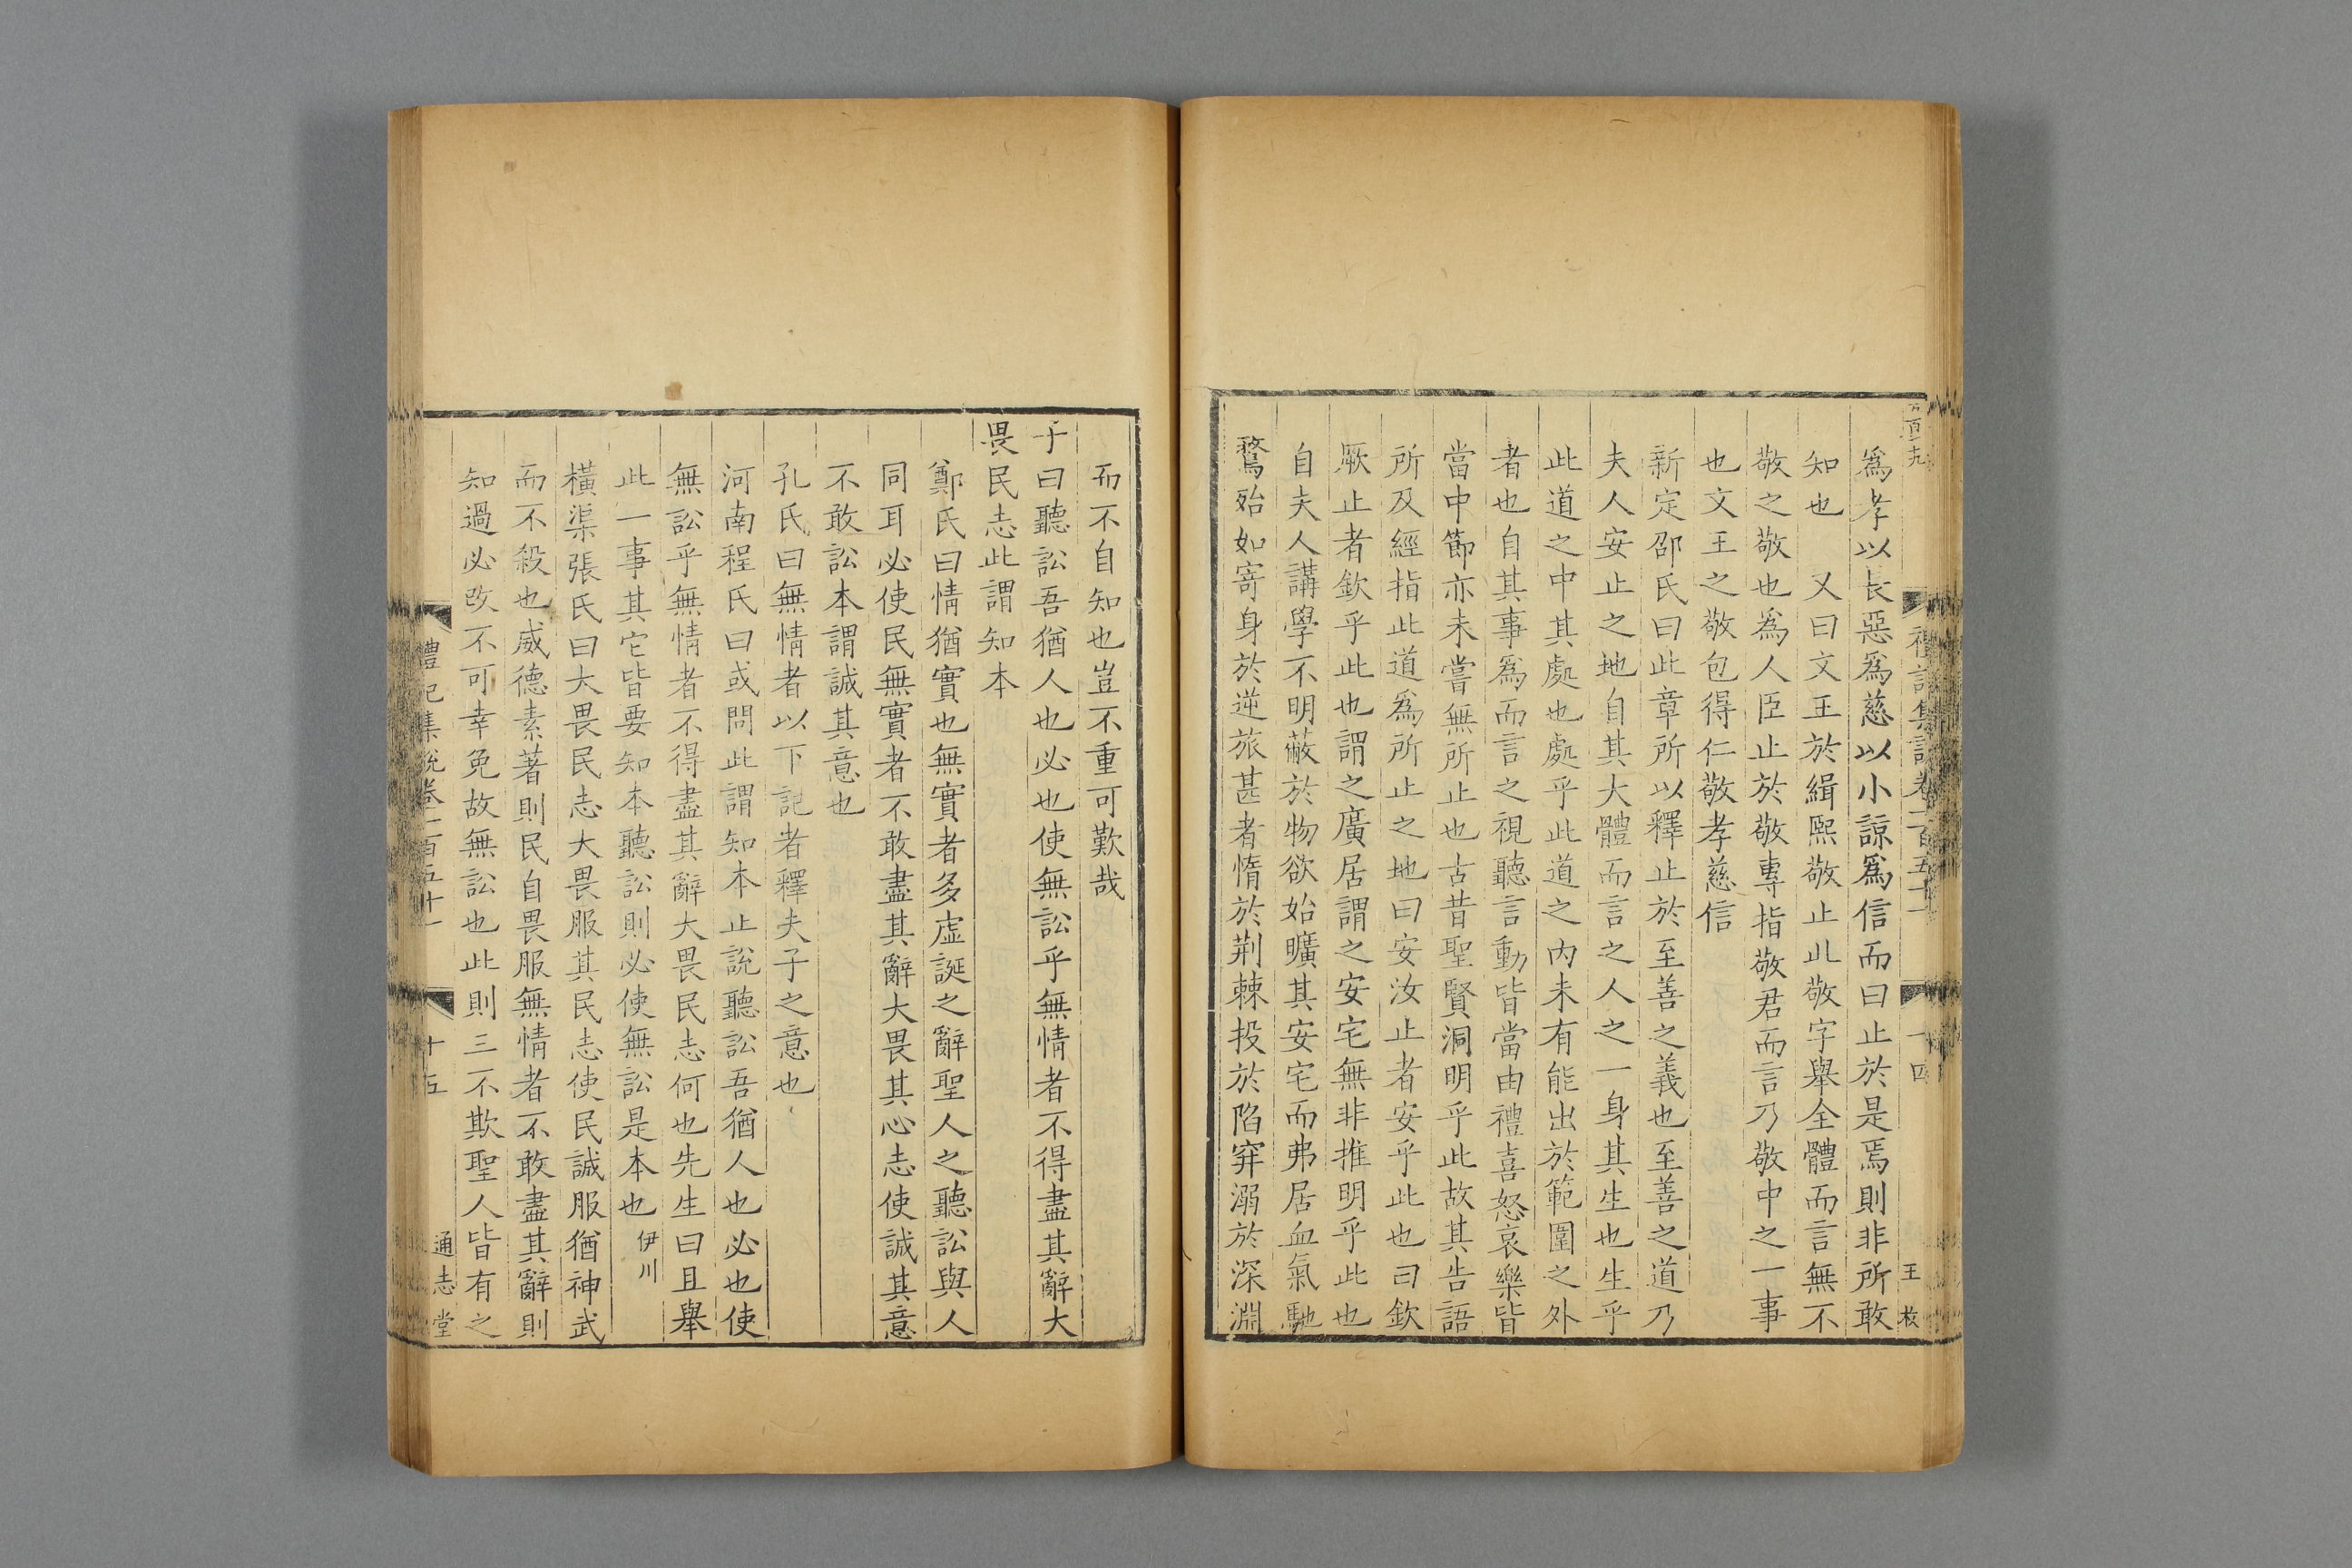 禮記集說卷一百五十一
十四
王
校
爲孝以長惡爲慈以小諒爲信而曰止於是焉則非所敢
知也 又曰文王於緝熙敬止此敬字舉全體而言無不
敬之敬也爲人臣止於敬專指敬君而言乃敬中之一事
也文王之敬包得仁敬孝慈信
新定邵氏曰此章所以釋止於至善之義也至善之道乃
夫人安止之地自其大體而言之人之一身其生也生乎
此道之中其處也處乎此道之內未有能出於範圍之外
者也自其事爲而言之視聽言動皆當由禮喜怒哀樂皆
當中節亦未嘗無所止也古昔聖賢洞明乎此故其告語
所及經指此道爲所止之地曰安汝止者安乎此也曰欽
厥止者欽乎此也謂之廣居謂之安宅無非推明乎此也
自夫人講學不明蔽於物欲始曠其安宅而弗居血氣馳
騖殆如寄身於逆旅甚者惰於荆棘投於陷穽溺於深淵
而不自知也豈不重可歎哉
子曰聽訟吾猶人也必也使無訟乎無情者不得盡其辭大
畏民志此謂知本
鄭氏曰情猶實也無實者多虛誕之辭聖人之聽訟與人
同耳必使民無實者不敢盡其辭大畏其心志使誠其意
不敢訟本謂誠其意也
孔氏曰無情者以下記者釋夫子之意也
河南程氏曰或問此謂知本止說聽訟吾猶人也必也使
無訟乎無情者不得盡其辭大畏民志何也先生曰且舉
此一事其它皆要知本聽訟則必使無訟是本也伊川
橫渠張氏曰大畏民志大畏服其民志使民誠服猶神武
而不殺也威德素著則民自畏服無情者不敢盡其辭則
知過必改不可幸免故無訟也此則三不欺聖人皆有之
禮記集說卷一百五十一
十五
通志堂